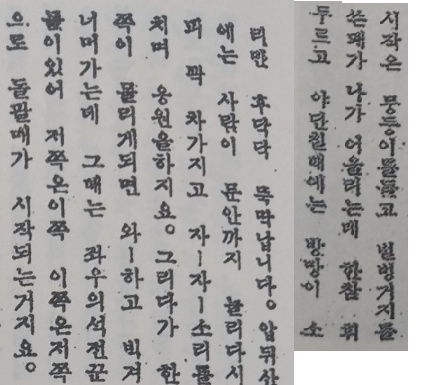 시작은 몽둥이를들고 벌벙거지를
쓴패가 나가 어울리는데 한참 휘
두르고 야단칠때에는 방망이 소
리만 후닥닥 뚝딱납니다。압뒤산
에는 사람이 문안까지 늘리다시
피 꽉 차가지고 자ㅡ자ㅡ소리를
치며 응원을하지요。그리다가 한
쪽이 몰리게되면 와ㅡ하고 빅겨
너머가는데 그때는 좌우의석전꾼
들이있어 저쪽은이쪽 이쪽은저쪽
으로 돌팔매가 시작되는거지요。